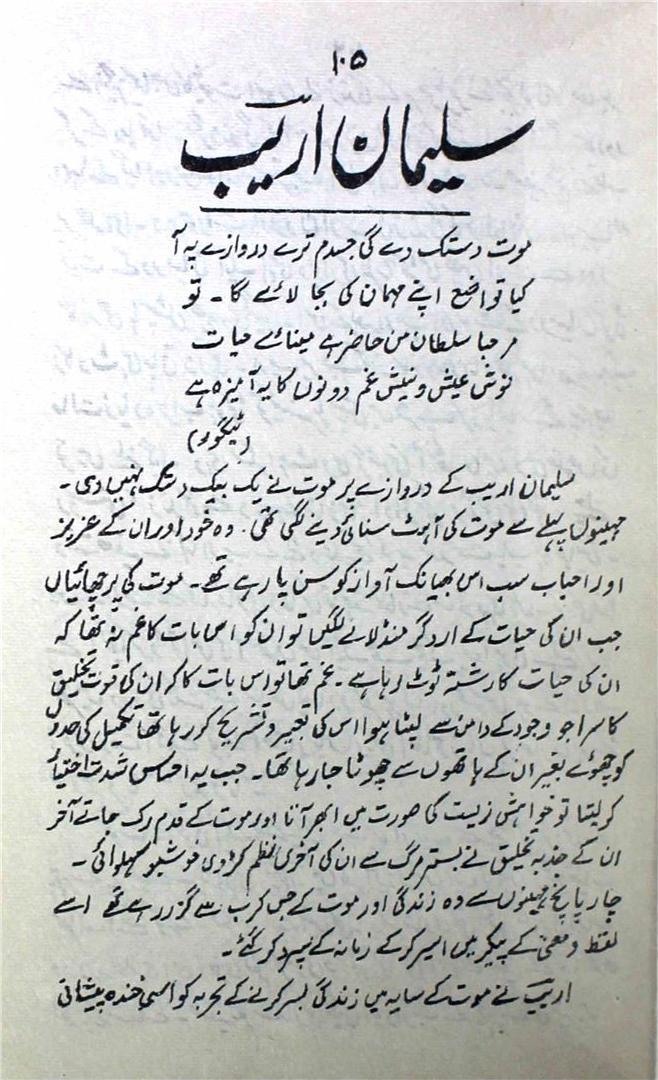 ۱۰۵
سلیمان اریب
موت دستک دے گی جسدم ترے دروازے پہ آ
کیا تواضع اپنے مہمان کی بجا لائے گا ۔ تو
مرحبا سلطان من حاضر ہے مینائے حیات
نوش عیش و نیش غم دونوں کا یہ آمیزہ ہے
(ٹیگور)
سلیمان اریب کے دروازے پر موت نے یک بیک دستک نہیں دی ۔
مہینوں پہلے سے موت کی آہٹ سنائی دینے لگی تھی ۔ وہ خود اور ان کے عزیز
اور احباب سب اس بھیانک آواز کو سن پا رہے تھے ۔ موت کی پرچھائیاں
جب ان کی حیات کے ارد گر منڈلانے لگیں تو ان کو اس بات کا غم نہ تھا کہ
ان کی حیات کا رشتہ ٹوٹ رہا ہے ۔ غم تھا تو اس بات کا کہ ان کی قوت تخلیق
کا سرا جو وجود کے دامن سے لپٹا ہوا اس کی تعبیر و تشریح کر رہا تھا تکمیل کی حدوں
کو چھوئے بغیر ان کے ہاتھوں سے چھوٹا جا رہا تھا ۔ جب یہ احساس شدت اختیار
کر لیتا تو خواہش زیست کی صورت میں ابھر آتا اور موت کے قدم رک جاتے آخر
ان کے جذبہ تخلیق نے بستر مرگ سے ان کی آخری نظم کڑوی خوشبو کہلوائی ۔
چار پانچ مہینوں سے وہ زندگی اور موت کے جس کرب سے گزر رہے تھے اسے
لفظ و معنی کے پیکر میں اسیر کر کے زمانہ کے سپرد کر گئے ۔
اریب نے موت کے سایہ میں زندگی بسر کرنے کے تجربہ کو اسی خندہ پیشانی